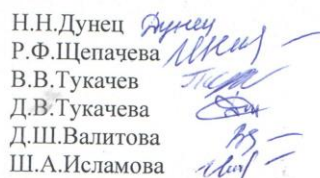 Н.Н.Дунец Дунец
Р.Ф.Щепачева
В.В.Тукачев
Д.В.Тукачева
Д.Ш.Валитова
Ш.А.Исламова